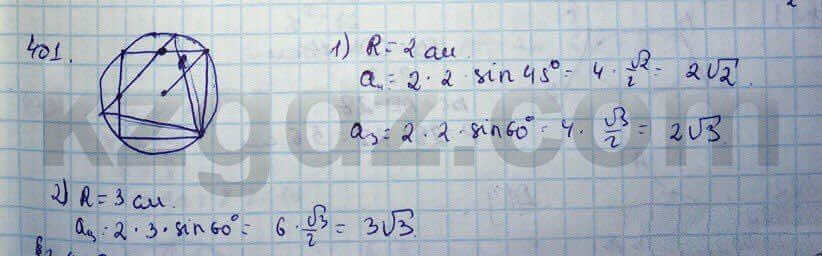 401.
1) R = 2 см.
a₄ = 2 · 2 · sin 45° = 4 · √2/2 = 2√2.
a₃ = 2 · 2 · sin 60° = 4 · √3/2 = 2√3.
kzgdz.com
2) R = 3 см.
a₃ = 2 · 3 · sin 60° = 6 · √3/2 = 3√3.